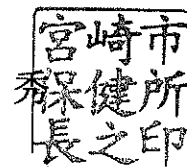 宮崎市
秀
保健所
長之印